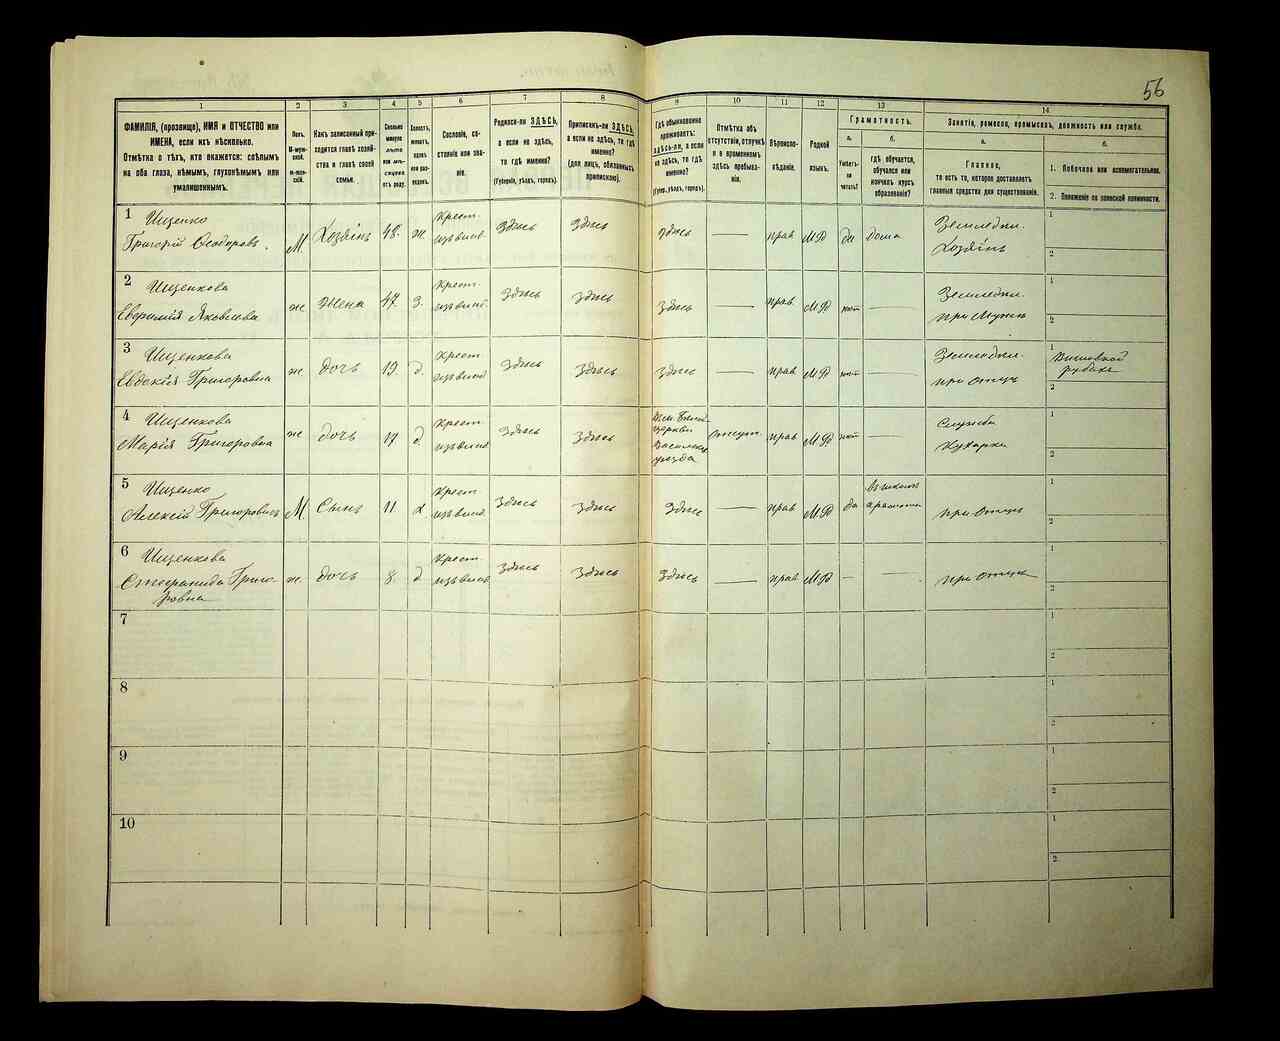 56
1 2 3 4 5 6 7 8 9 10 11 12 13 14
ФАМИЛІЯ, (прозвище), ИМЯ и ОТЧЕСТВО или
ИМЕНА, если ихъ нѣсколько.
Отмѣтка о тѣхъ, кто окажется: слѣпымъ
на оба глаза, нѣмымъ, глухонѣмымъ или
умалишеннымъ.
Полъ.
М-муж-
ской.
Ж-жен-
скій.
Какъ записанный при-
ходится главѣ хозяй-
ства и главѣ своей
семьи.
Сколько
минуло
лѣтъ
или мѣ-
сяцевъ
отъ роду.
Холостъ,
женатъ,
вдовъ
или раз-
веденъ.
Сословіе, со-
стояніе или зва-
ніе.
Родился-ли ЗДѢСЬ,
а если не здѣсь,
то гдѣ именно?
(Губернія, уѣздъ, городъ).
Приписанъ-ли ЗДѢСЬ,
а если не здѣсь, то гдѣ
именно?
(для лицъ, обязанныхъ
припискою).
Гдѣ обыкновенно
проживаетъ:
здѣсь-ли, а если
не здѣсь, то гдѣ
именно?
(Губерн., уѣздъ, городъ).
Отмѣтка объ
отсутствіи, отлучкѣ
и о временномъ
здѣсь пребыва-
ніи.
Вѣроиспо-
вѣданіе.
Родной
языкъ.
Грамотность.
а.
Умѣетъ-
ли
читать?
б.
гдѣ обучается,
обучался или
кончилъ курсъ
образованія?
Занятіе, ремесло, промыселъ, должность или служба.
а.
Главное,
то есть то, которое доставляетъ
главныя средства для существованія.
б.
1. Побочное или вспомогательное.
2. Положеніе по воинской повинности.
1 Ищенко
Григорій Ѳеодоровъ. М. Хозяинъ 48. ж. Крест. Здѣсь Здѣсь Здѣсь — прав МР да дома Земледѣл. Хозяинъ 1 2
2 Ищенкова
Евфимія Яковлева ж Жена 47. з. Крест. Здѣсь Здѣсь Здѣсь — прав МР нѣт — Земледѣл. при мужѣ 1 2
3 Ищенкова
Евдокія Григоровна ж дочь 19. д. Крест Здѣсь Здѣсь Здѣсь — прав МР нѣт — Земледѣл. при отцѣ 1 2
4 Ищенкова
Марія Григоровна ж дочь 17 д Крест Здѣсь Здѣсь церкви уѣзда Отсут. прав МР нѣт — Служба Кухарка 1 2
5 Ищенко
Алексій Григоровичъ М Сынъ 11. х. Крест Здѣсь Здѣсь Здѣсь — прав МР да въ школѣ при отцѣ 1 2
6 Ищенкова
Стефанида Григо-
ровна ж. дочь 8. д Крест Здѣсь Здѣсь Здѣсь — прав МР — при отцѣ 1 2
7 1 2
8 1 2
9 1 2
10 1 2